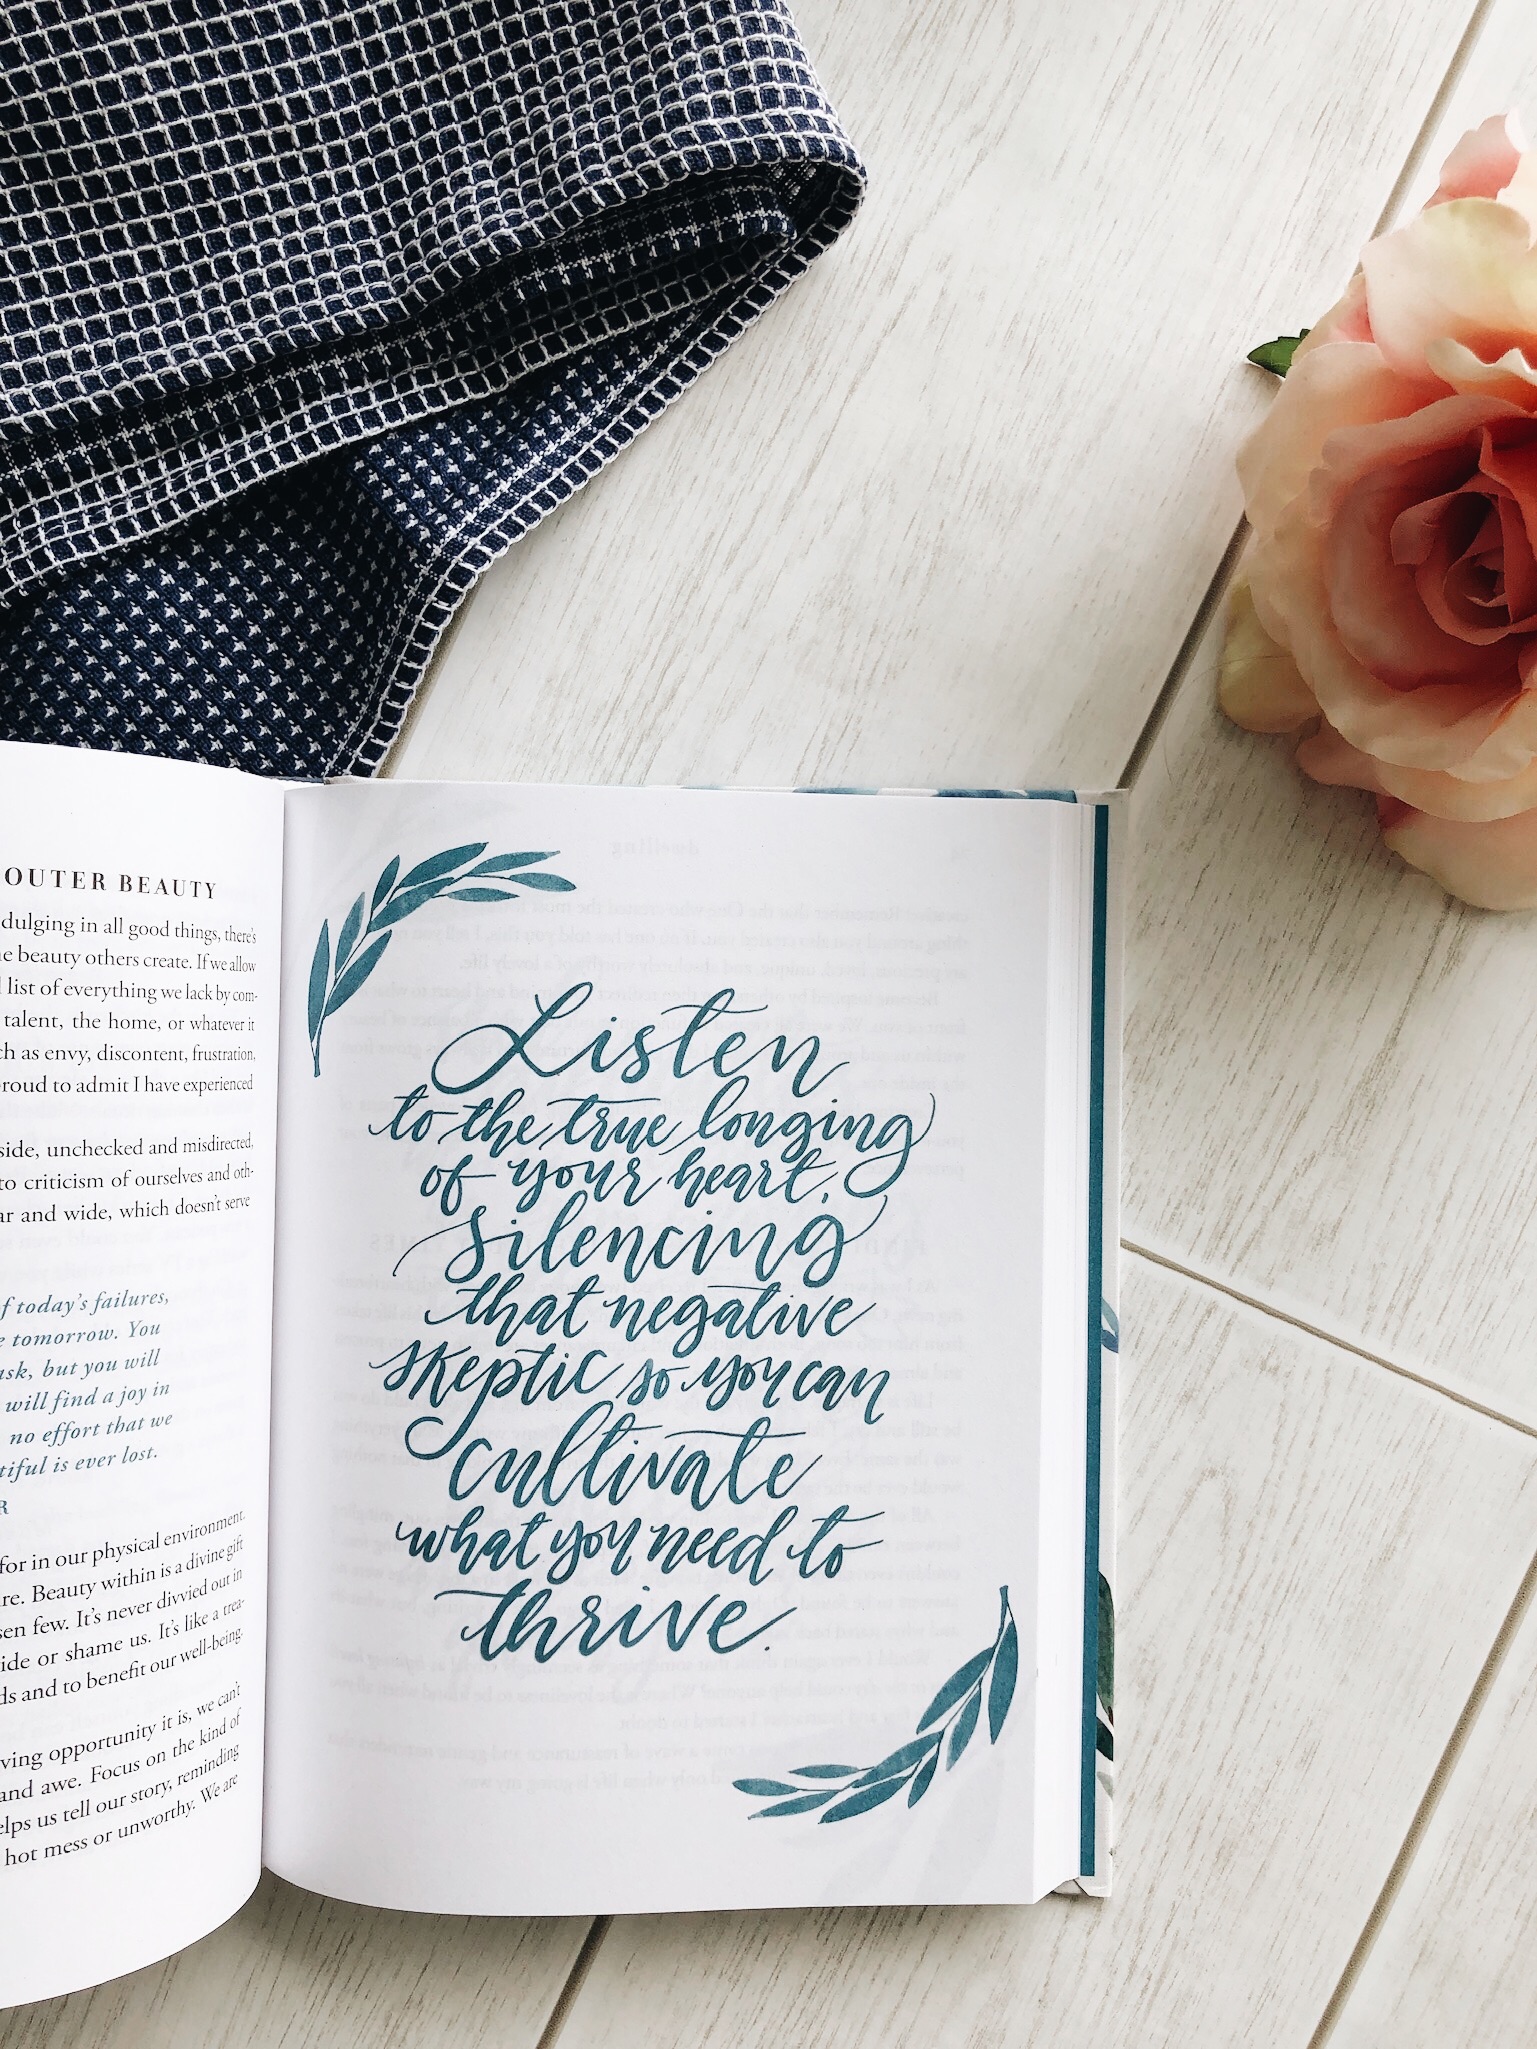 OUTER BEAUTY
dulging in all good things, there's
e beauty others create. If we allow
list of everything we lack by com-
talent, the home, or whatever it
ch as envy, discontent, frustration,
proud to admit I have experienced
side, unchecked and misdirected,
to criticism of ourselves and oth-
ar and wide, which doesn't serve
f today's failures,
e tomorrow. You
ask, but you will
will find a joy in
no effort that we
tiful is ever lost.
R
for in our physical environment.
re. Beauty within is a divine gift
sen few. It's never divvied out in
ide or shame us. It's like a trea-
ds and to benefit our well-being.
ving opportunity it is, we can't
and awe. Focus on the kind of
elps us tell our story, reminding
hot mess or unworthy. We are
Listen
to the true longing
of your heart,
silencing
that negative
skeptic so you can
cultivate
what you need to
thrive.